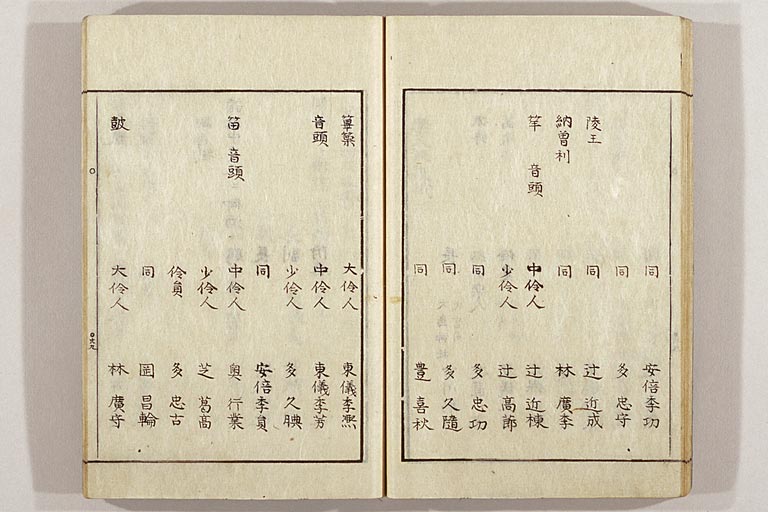 同 安倍季功
同 多忠守
陵王 同 辻近成
納曽利 同 林廣季
竿 音頭 中伶人 辻近棟
少伶人 辻高節
同 多忠功
同 多久隨
同 豊喜秋
篳篥 大伶人 東儀季凞
音頭 中伶人 東儀季芳
少伶人 多久腆
同 安倍季員
笛 音頭 中伶人 奥行業
少伶人 芝葛高
伶員 多忠古
同 岡昌輪
鼓 大伶人 林廣守